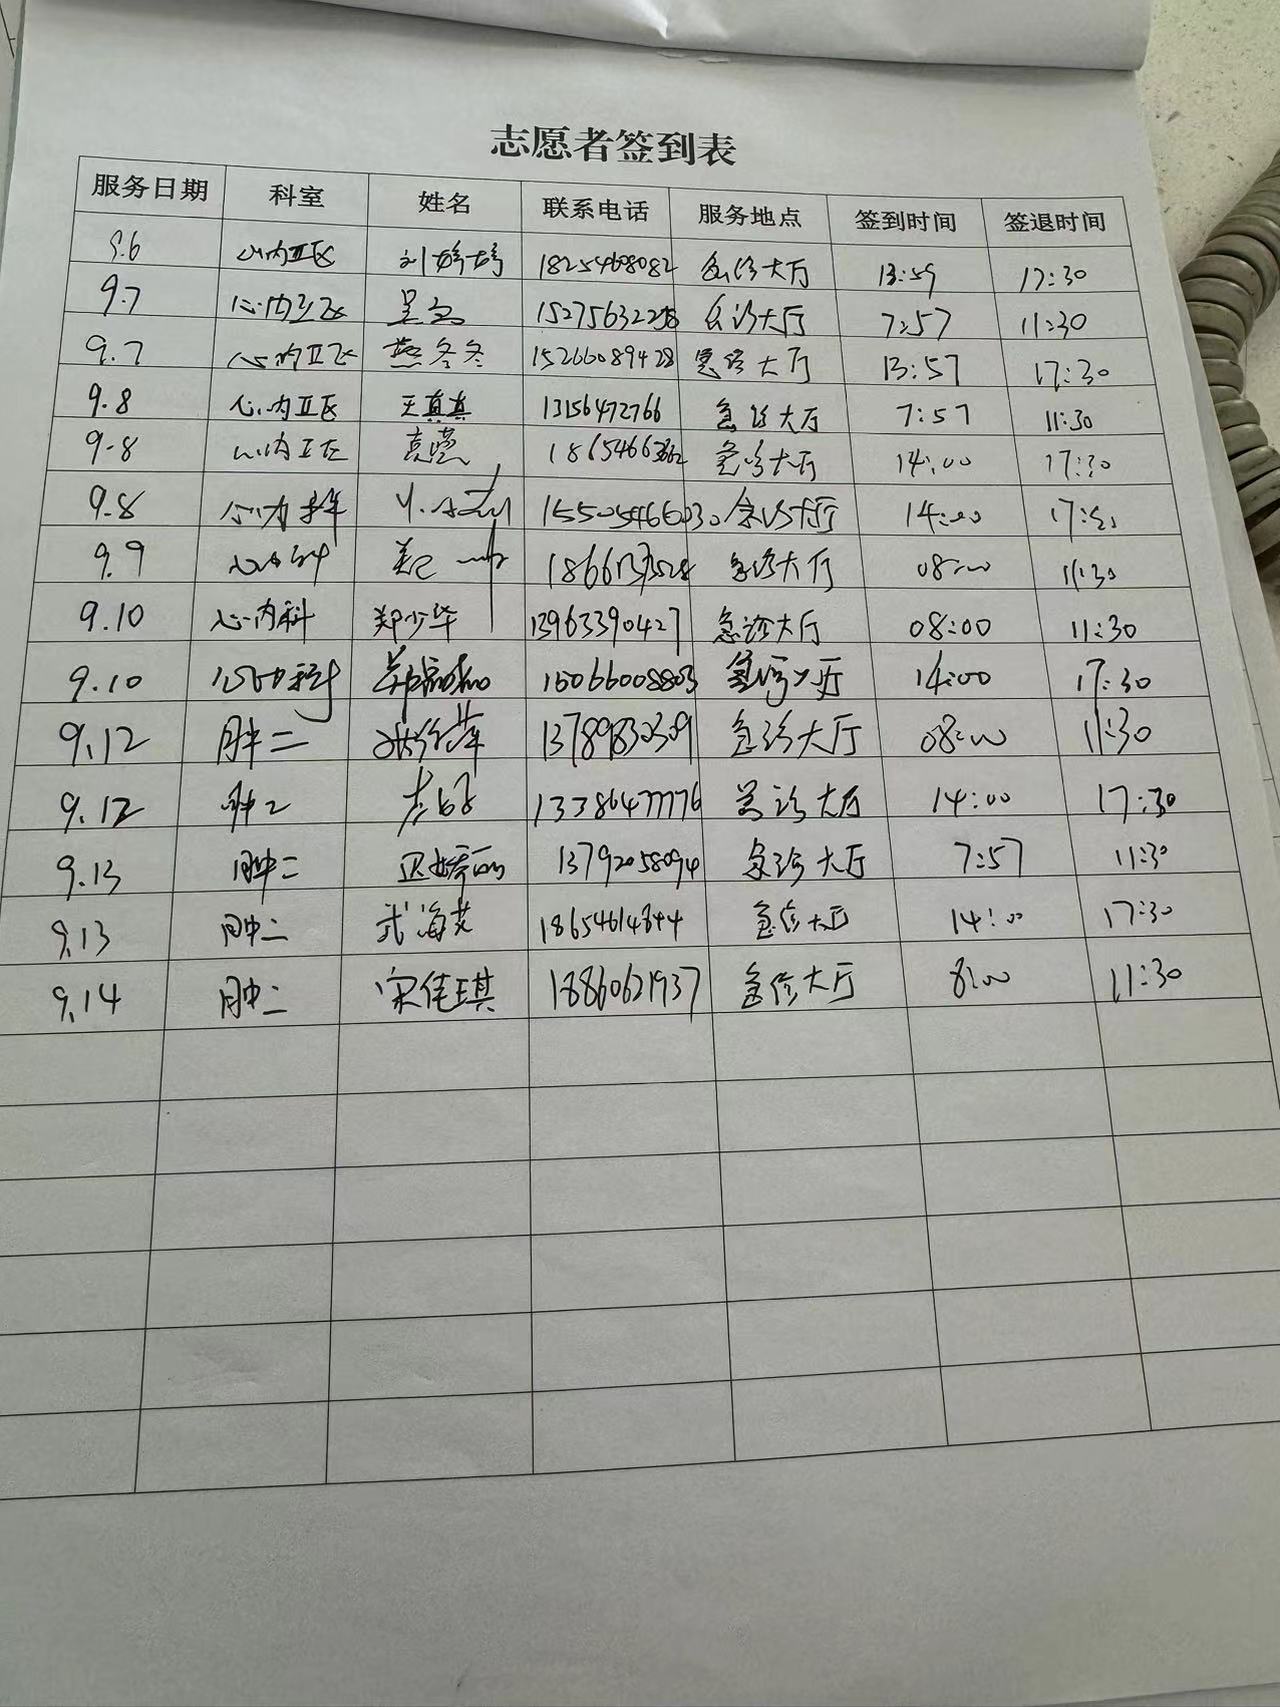 志愿者签到表
服务日期 科室 姓名 联系电话 服务地点 签到时间 签退时间
9.6 心内五区 刘婷婷 18254608082 急诊大厅 13:59 17:30
9.7 心内五区 15275632298 急诊大厅 7:57 11:30
9.7 心内五区 燕冬冬 15266089428 急诊大厅 13:57 17:30
9.8 心内五区 王真真 13156472766 急诊大厅 7:57 11:30
9.8 心内五区 袁莹 急诊大厅 14:00 17:30
9.8 心内 15505466030 急诊大厅 14:00 17:30
9.9 急诊大厅 08:00 11:30
9.10 心内科 郑少华 13963390427 急诊大厅 08:00 11:30
9.10 心内科 15066008803 急诊大厅 14:00 17:30
9.12 肿二 急诊大厅 08:00 11:30
9.12 肿2 13386477776 急诊大厅 14:00 17:30
9.13 肿二 13792058094 急诊大厅 7:57 11:30
9.13 肿二 武海芳 18654614844 急诊大厅 14:00 17:30
9.14 肿二 宋佳琪 18860621937 急诊大厅 8:00 11:30